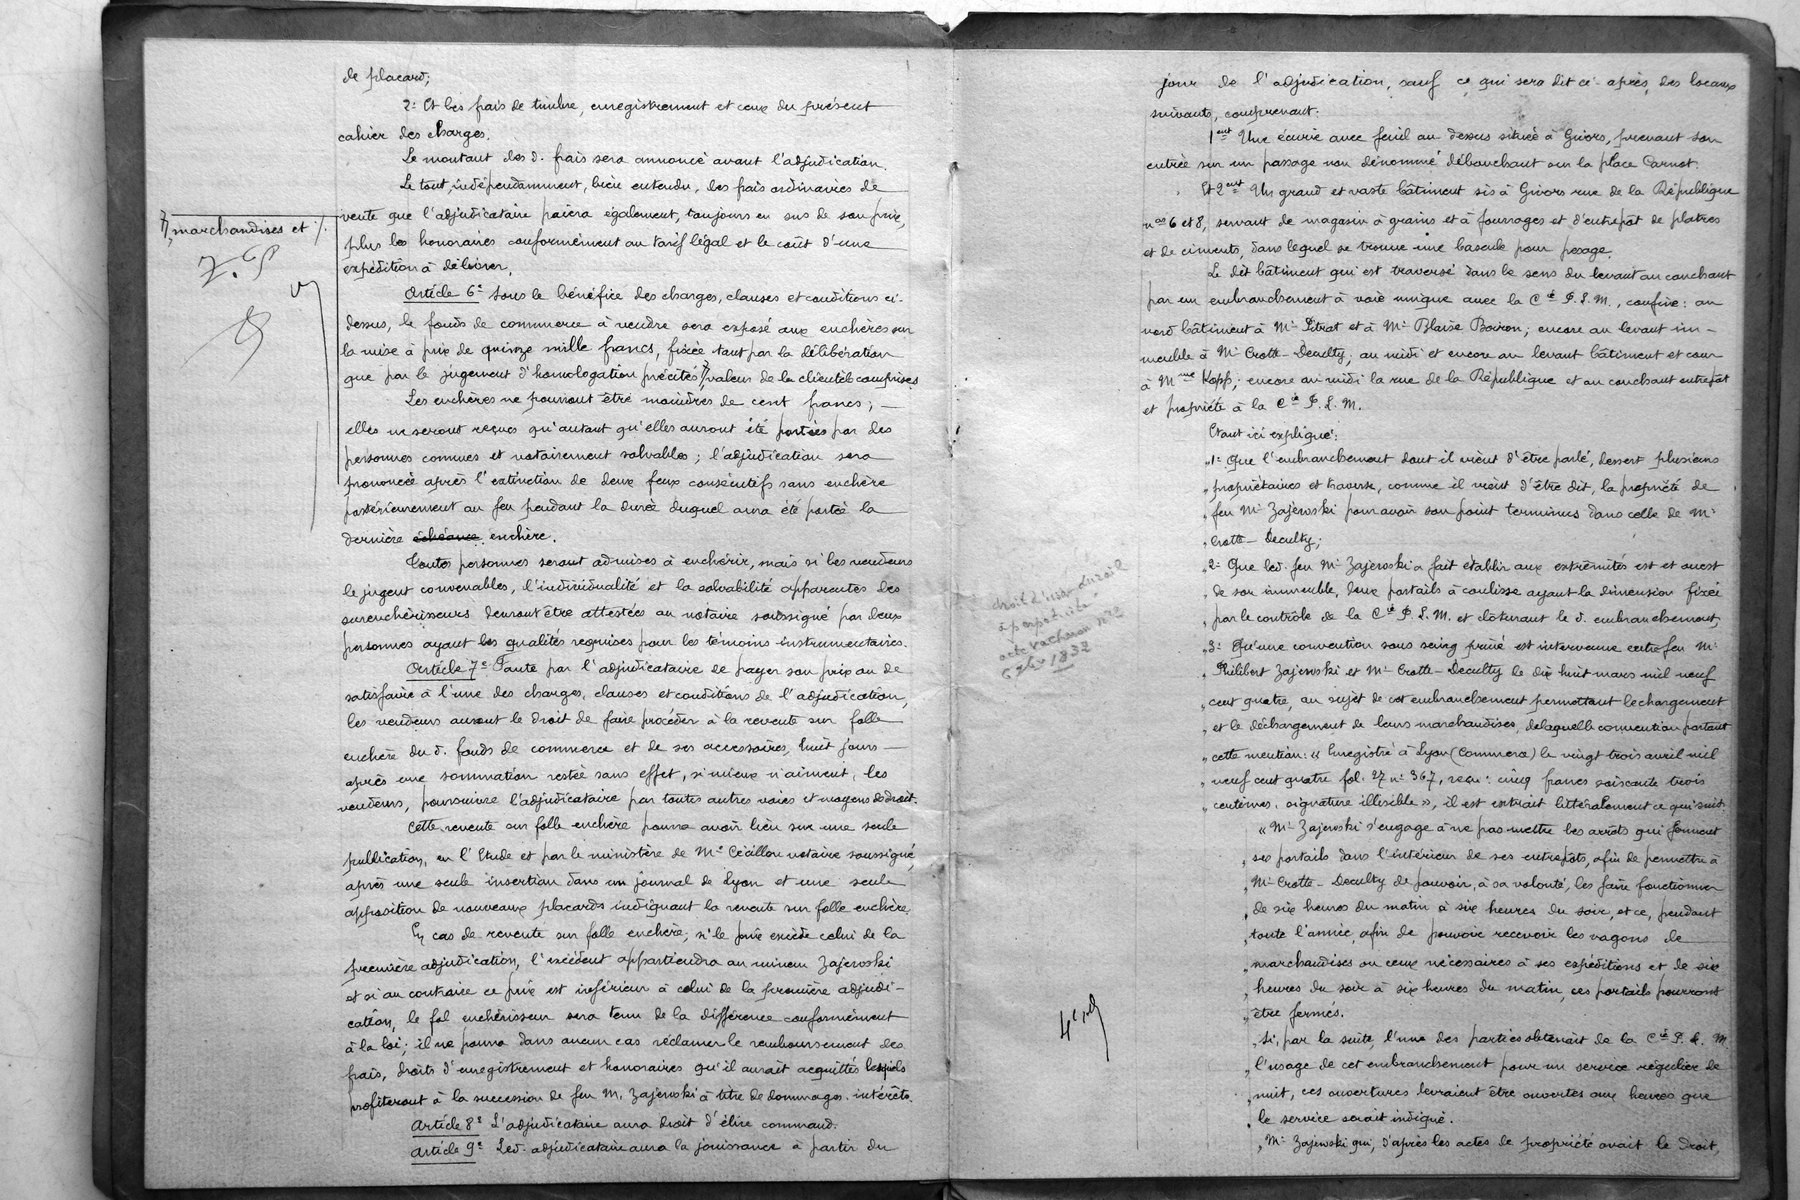 de placard;
2º Et les frais de timbre, enregistrement et ceux du présent
cahier des charges.
Le montant des d. frais sera annoncé avant l'adjudication.
Le tout, indépendamment, bien entendu, des frais ordinaires de
vente que l'adjudicataire paiera également, toujours en sus de son prix,
plus les honoraires conformément au tarif légal et le coût d'une
expédition à délivrer.
marchandises et
Article 6e Sous le bénéfice des charges, clauses et conditions ci-
dessus, le fonds de commerce à vendre sera exposé aux enchères sur
la mise à prix de quinze mille francs, fixée tant par la délibération
que par le jugement d'homologation précités valeur de la clientèle comprises
Les enchères ne pourront être moindres de cent francs; —
elles ne seront reçues qu'autant qu'elles auront été portées par des
personnes connues et notoirement solvables; l'adjudication sera
prononcée après l'extinction de deux feux consécutifs sans enchère
postérieurement au feu pendant la durée duquel aura été portée la
dernière échéance enchère.
Toutes personnes seront admises à enchérir, mais si les vendeurs
le jugent convenables, l'individualité et la solvabilité apparentes des
surenchérisseurs devront être attestées au notaire soussigné par deux
personnes ayant les qualités requises pour les témoins instrumentaires.
Article 7e Faute par l'adjudicataire de payer son prix ou de
satisfaire à l'une des charges, clauses et conditions de l'adjudication,
les vendeurs auront le droit de faire procéder à la revente sur folle
enchère du d. fonds de commerce et de ses accessoires, huit jours —
après une sommation restée sans effet, si mieux n'aiment, les
vendeurs, poursuivre l'adjudicataire par toutes autres voies et moyens de droit.
Cette revente sur folle enchère pourra avoir lieu sur une seule
publication, en l'Etude et par le ministère de Me Cécillon notaire soussigné,
après une seule insertion dans un journal de Lyon et une seule
apposition de nouveaux placards indiquant la revente sur folle enchère.
En cas de revente sur folle enchère, si le prix excède celui de la
première adjudication, l'excédent appartiendra au mineur Zajewski
et si au contraire ce prix est inférieur à celui de la première adjudi-
cation, le fol enchérisseur sera tenu de la différence conformément
à la loi; il ne pourra dans aucun cas réclamer le remboursement des
frais, droits d'enregistrement et honoraires qu'il aurait acquittés lesquels
profiteront à la succession de feu M. Zajewski à titre de dommages-intérêts.
Article 8e L'adjudicataire aura droit d'élire command.
Article 9e Led. adjudicataire aura la jouissance à partir du
jour de l'adjudication, sauf ce qui sera dit ci-après, des locaux
suivants, comprenant:
1ent Une écurie avec fenil au dessus située à Givors, prenant son
entrée sur un passage non dénommé débouchant sur la place Carnot.
Et 2ent Un grand et vaste bâtiment sis à Givors rue de la République
nos 6 et 8, servant de magasin à grains et à fourrages et d'entrepôt de plâtres
et de ciments, dans lequel se trouve une bascule pour pesage.
Le dit bâtiment qui est traversé dans le sens du levant au couchant
par un embranchement à voie unique avec la Cie P.L.M., confine: au
nord bâtiment à Mr Pitrat et à Mr Blaise Boiron; encore au levant im-
meuble à Mr Crotte-Deculty; au midi et encore au levant bâtiment et cour
à Mme Kopp; encore au midi la rue de la République et au couchant entrepôt
et propriété à la Cie P.L.M.
Etant ici expliqué:
„ 1º Que l'embranchement dont il vient d'être parlé, dessert plusieurs
„ propriétaires et traverse, comme il vient d'être dit, la propriété de
„ feu Mr Zajewski pour avoir son point terminus dans celle de Mr
„ Crotte-Deculty;
„ 2º Que led. feu Mr Zajewski a fait établir aux extrémités est et ouest
„ de son immeuble, deux portails à coulisse ayant la dimension fixée
„ par le contrôle de la Cie P.L.M. et clôturant le d. embranchement;
droit d'user du rail
à perpétuité
acte Vacheron nre
1832
„ 3º Qu'une convention sous seing privé est intervenue entre feu Mr
„ Philibert Zajewski et Mr Crotte-Deculty le dix huit mars mil neuf
„ cent quatre, au sujet de cet embranchement permettant le chargement
„ et le déchargement de leurs marchandises, de laquelle convention portant
„ cette mention: « Enregistré à Lyon (Commerce) le vingt trois avril mil
„ neuf cent quatre fol. 27 nº 367, reçu: cinq francs soixante trois
„ centimes, signature illisible », il est extrait littéralement ce qui suit
« Mr Zajewski s'engage à ne pas mettre les arrêts qui ferment
„ ses portails dans l'intérieur de ses entrepôts, afin de permettre à
„ Mr Crotte-Deculty de pouvoir, à sa volonté, les faire fonctionner
„ de six heures du matin à six heures du soir, et ce, pendant
„ toute l'année, afin de pouvoir recevoir les wagons de
„ marchandises ou ceux nécessaires à ses expéditions et de six
„ heures du soir à six heures du matin, ces portails pourront
„ être fermés.
„ Si, par la suite, l'une des parties obtenait de la Cie P.L.M.
„ l'usage de cet embranchement pour un service régulier de
„ nuit, ces ouvertures devraient être ouvertes aux heures que
„ le service serait indiqué.
„ Mr Zajewski qui, d'après les actes de propriété avait le droit,